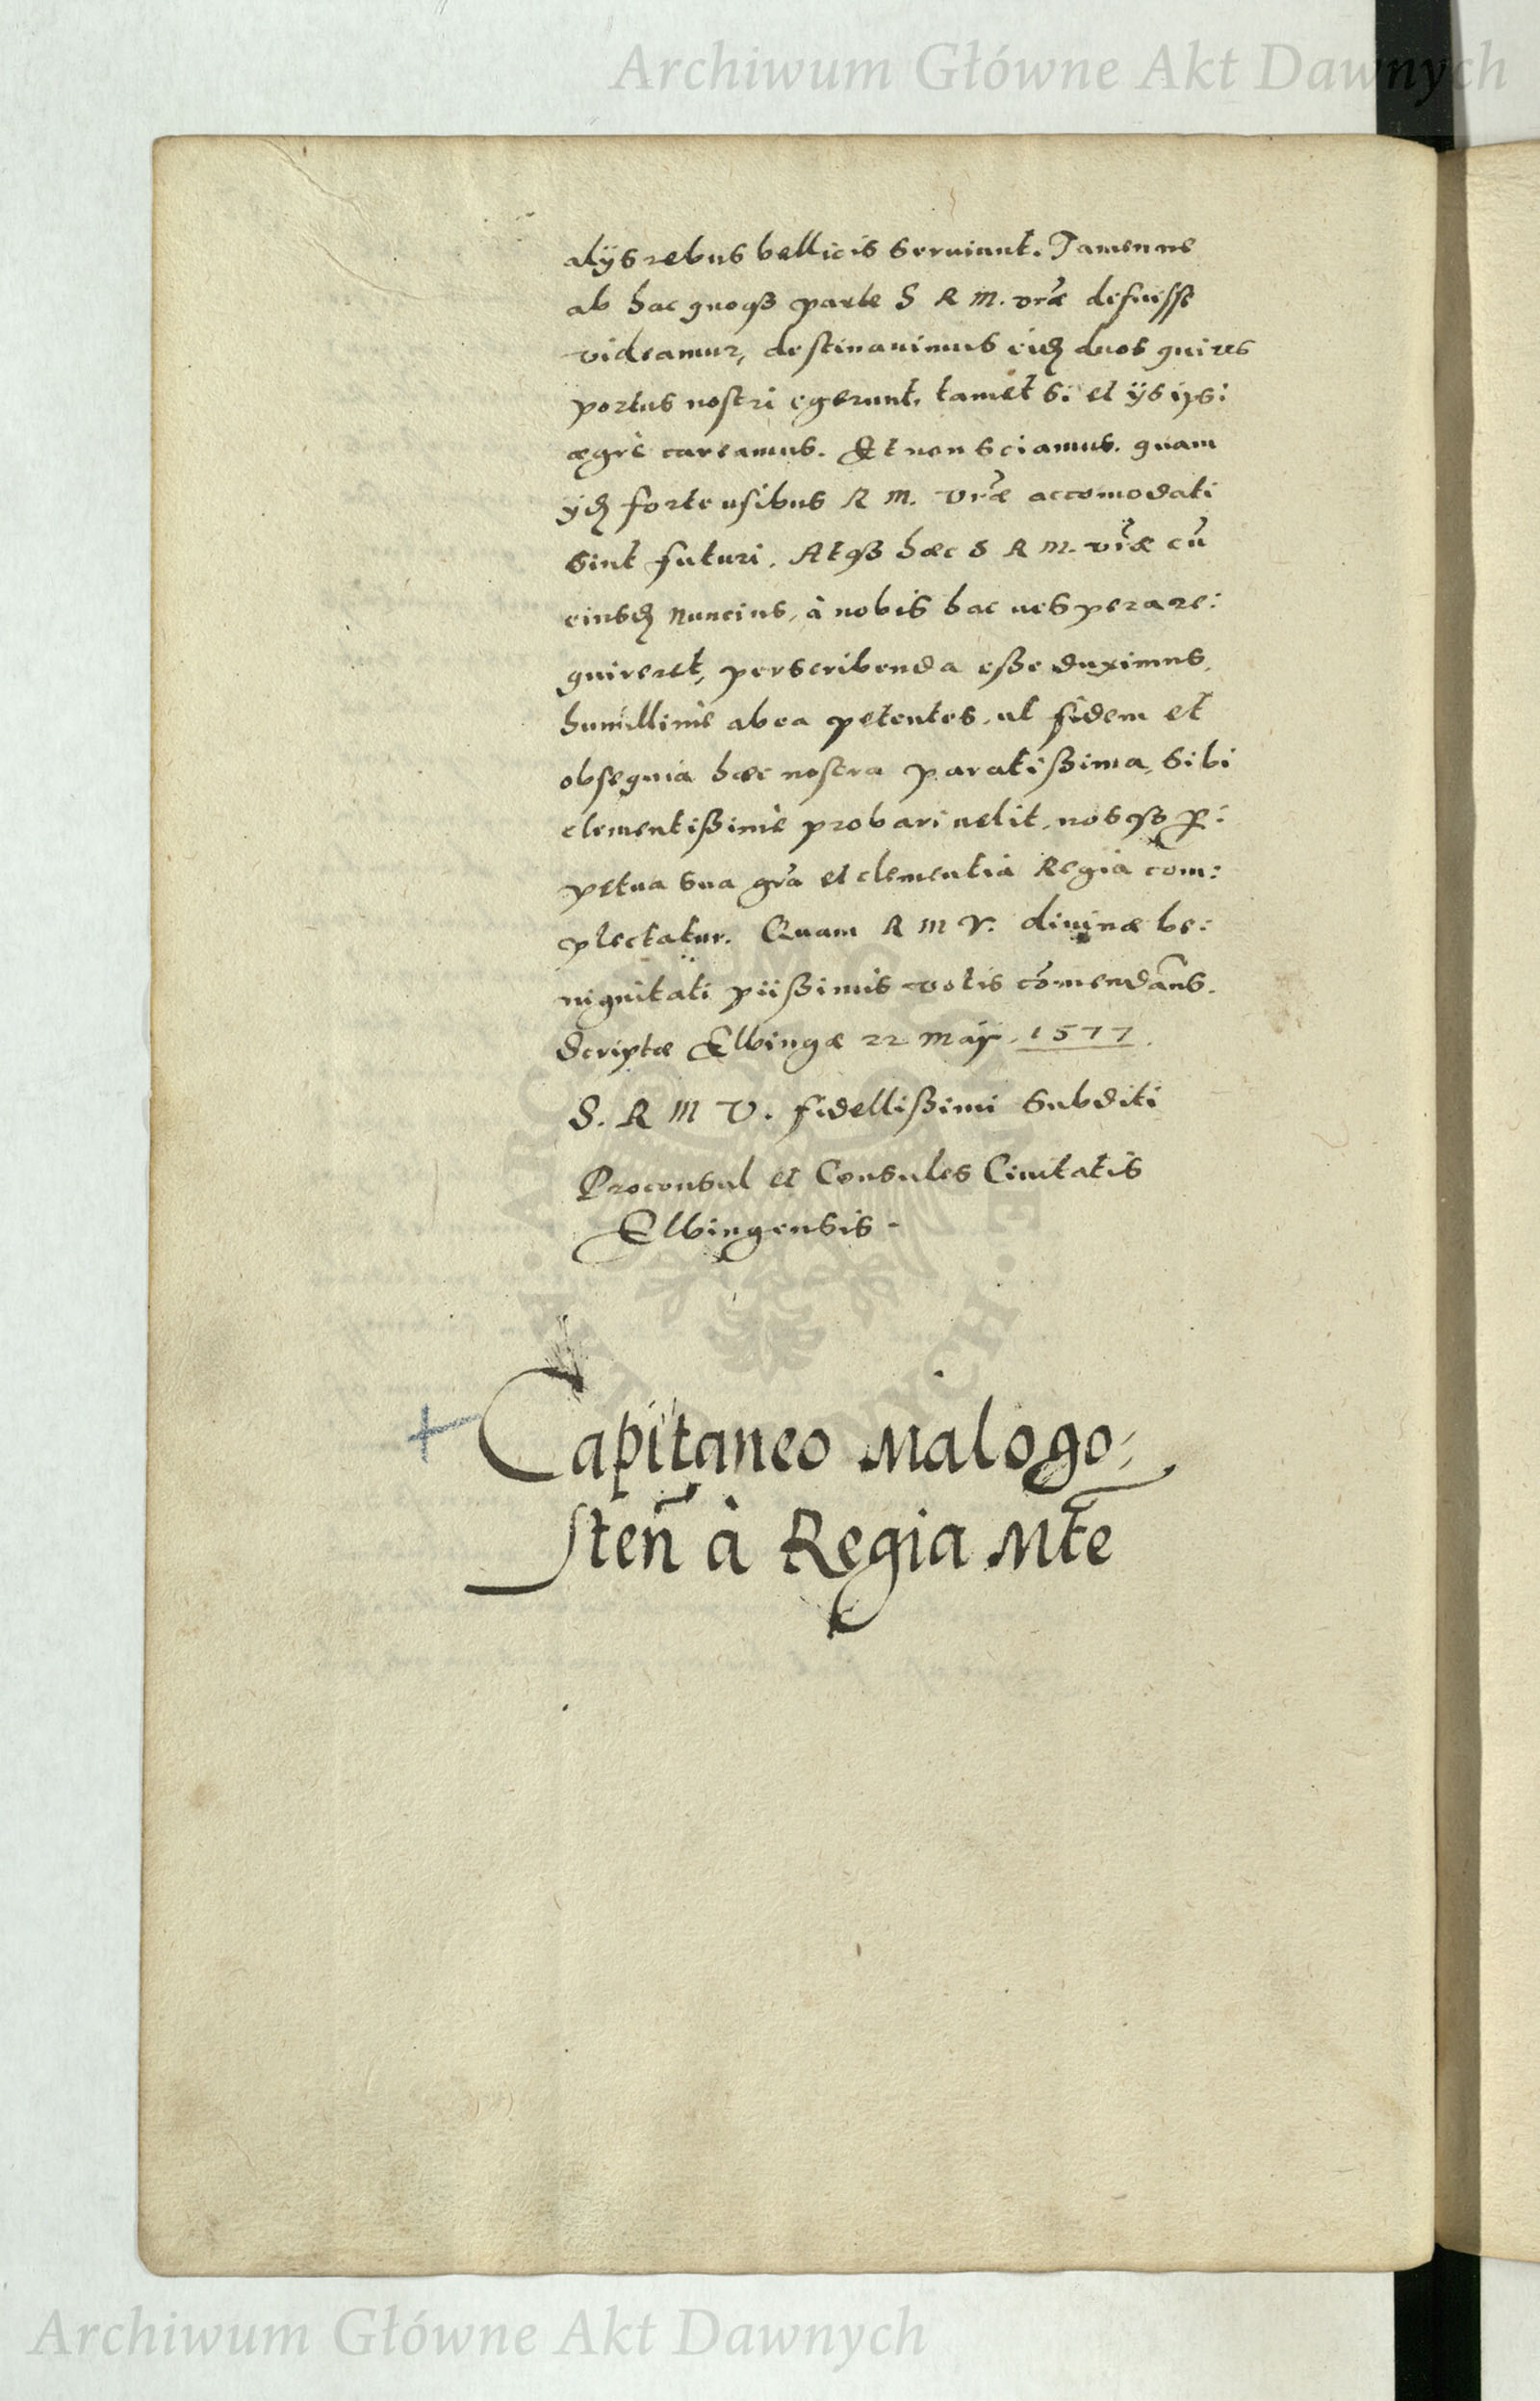 Archiwum Główne Akt Dawnych
alÿs rebus bellicis seruiunt. Tamen ne
ab hac quoqꝫ parte S R M. vr̃æ defuisse
videamur, destinauimus eidẽ duos qui res
portus nostri egerunt, tamet si et ÿs ipsi
ægrè careamus. Et non sciamus. quam
ÿdẽ forte usibus R M. vr̃æ accomodati
sint futuri. Atqꝫ hæc S R M. vr̃æ cũ
eiusdẽ Nuncius, à nobis hac uespera re:
quireret, perscribenda eße duximus,
humillimè ab ea petentes, ut fidem et
obsequia hæc nostra paratißima, sibi
clementißimè probari uelit, nosqꝫ ꝑ:
petua sua gr̃a et clementia Regia com:
plectatur. Quam R M V. diuinæ be:
nignitati piißimis votis cõmendãns.
Scriptæ Elbingæ 22 Maÿ. 1577.
S. R M V. fidellißimi Subditi
Proconsul et Consules Ciuitatis
Elbingensis -
Capitaneo Malogo:
sten̄ à Regia Mt̃e
Archiwum Główne Akt Dawnych